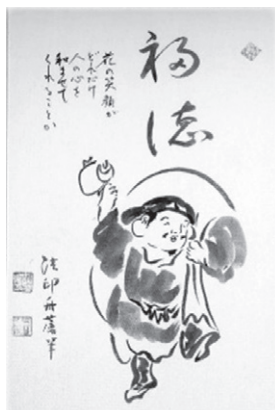 福徳
花の笑顔が
どれだけ
人の心を
和ませて
くれることか
法印舟筆